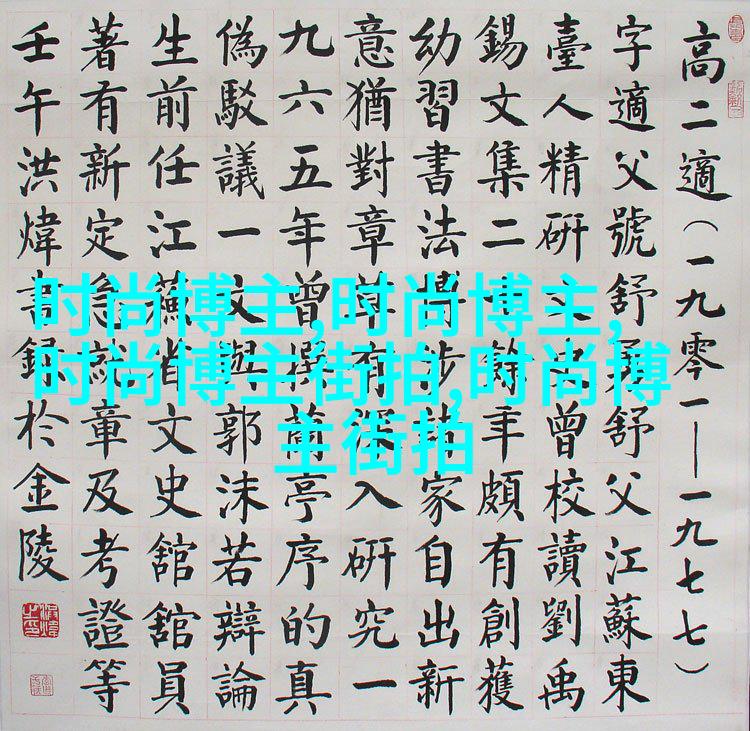 高二適（一九零一——一九七七）
字適父號舒舒父江蘇東
臺人精研文史曾校讀劉禹
錫文集二十餘年頗有創獲
幼習書法博涉諸家自出新
意猶對章草有深入研究一
九六五年曾撰蘭亭序的真
偽駁議一文與郭沫若辯論
生前任江蘇省文史舘舘員
著有新定急就章及考證等
壬午洪煒書録於金陵
时尚博主,时尚博主,
时尚博主街拍,时尚博
主街拍